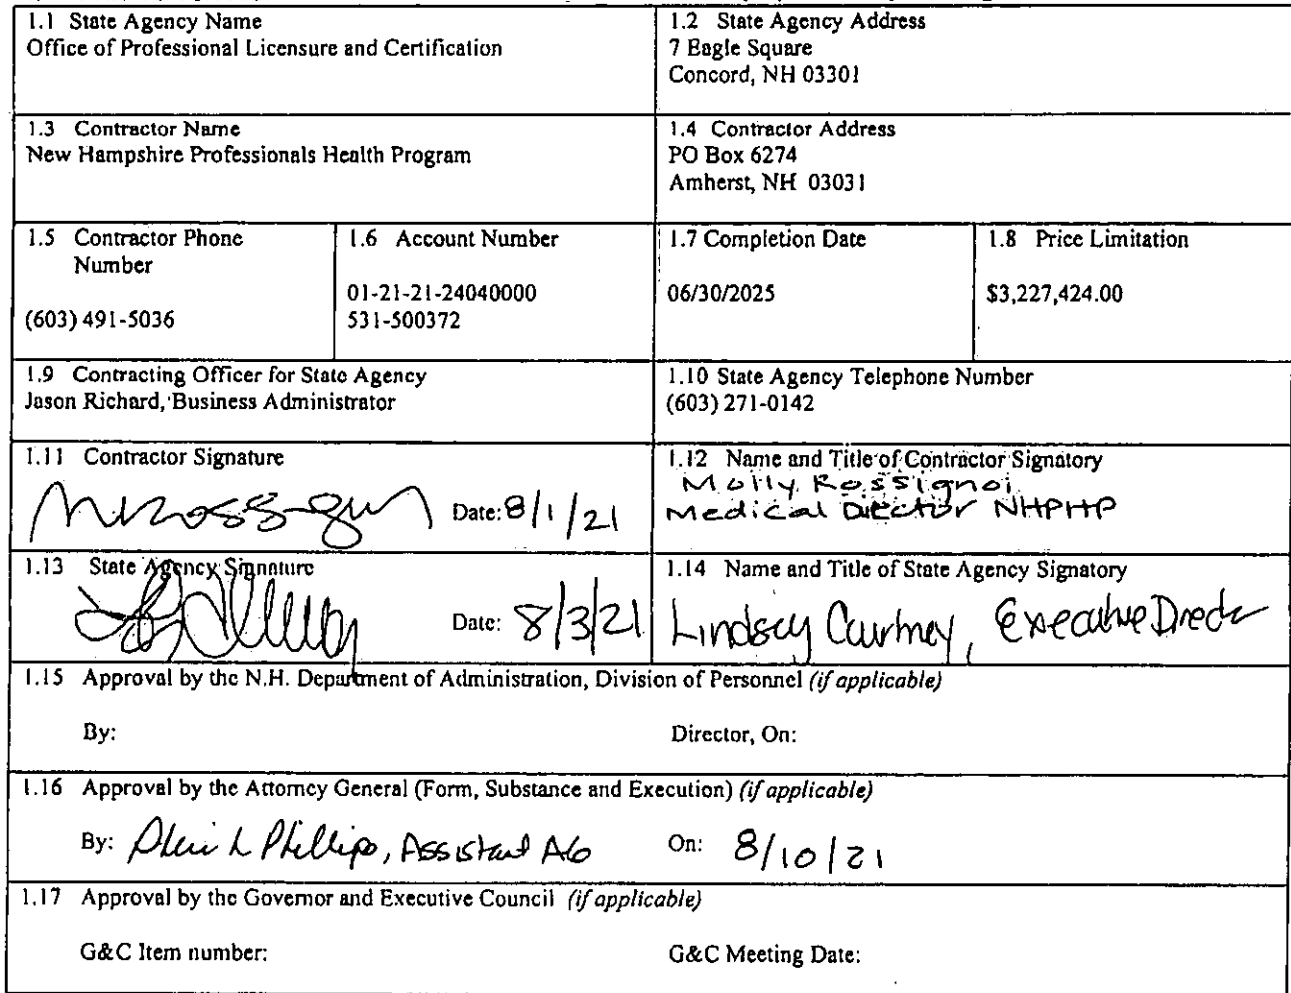 1.1 State Agency Name
Office of Professional Licensure and Certification
1.2 State Agency Address
7 Eagle Square
Concord, NH 03301
1.3 Contractor Name
New Hampshire Professionals Health Program
1.4 Contractor Address
PO Box 6274
Amherst, NH 03031
1.5 Contractor Phone
Number
(603) 491-5036
1.6 Account Number
01-21-21-24040000
531-500372
1.7 Completion Date
06/30/2025
1.8 Price Limitation
$3,227,424.00
1.9 Contracting Officer for State Agency
Jason Richard, Business Administrator
1.10 State Agency Telephone Number
(603) 271-0142
1.11 Contractor Signature
Date: 8/1/21
1.12 Name and Title of Contractor Signatory
Molly Rossignol
Medical Director NHPHP
1.13 State Agency Signature
Date: 8/3/21
1.14 Name and Title of State Agency Signatory
Lindsey Courtney, Executive Director
1.15 Approval by the N.H. Department of Administration, Division of Personnel (if applicable)
By: Director, On:
1.16 Approval by the Attorney General (Form, Substance and Execution) (if applicable)
By: Phillips, Assistant AG On: 8/10/21
1.17 Approval by the Governor and Executive Council (if applicable)
G&C Item number: G&C Meeting Date: